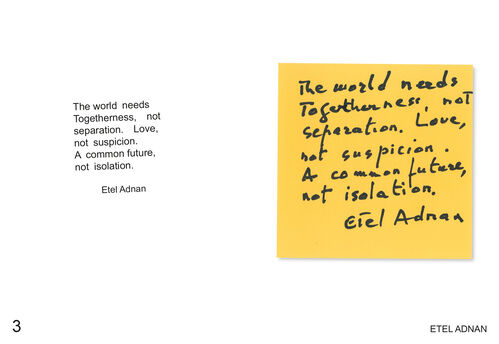 The world needs
Togetherness, not
separation. Love,
not suspicion.
A common future,
not isolation.
Etel Adnan
The world needs
Togetherness, not
separation. Love,
not suspicion.
A common future,
not isolation.
Etel Adnan
3
ETEL ADNAN